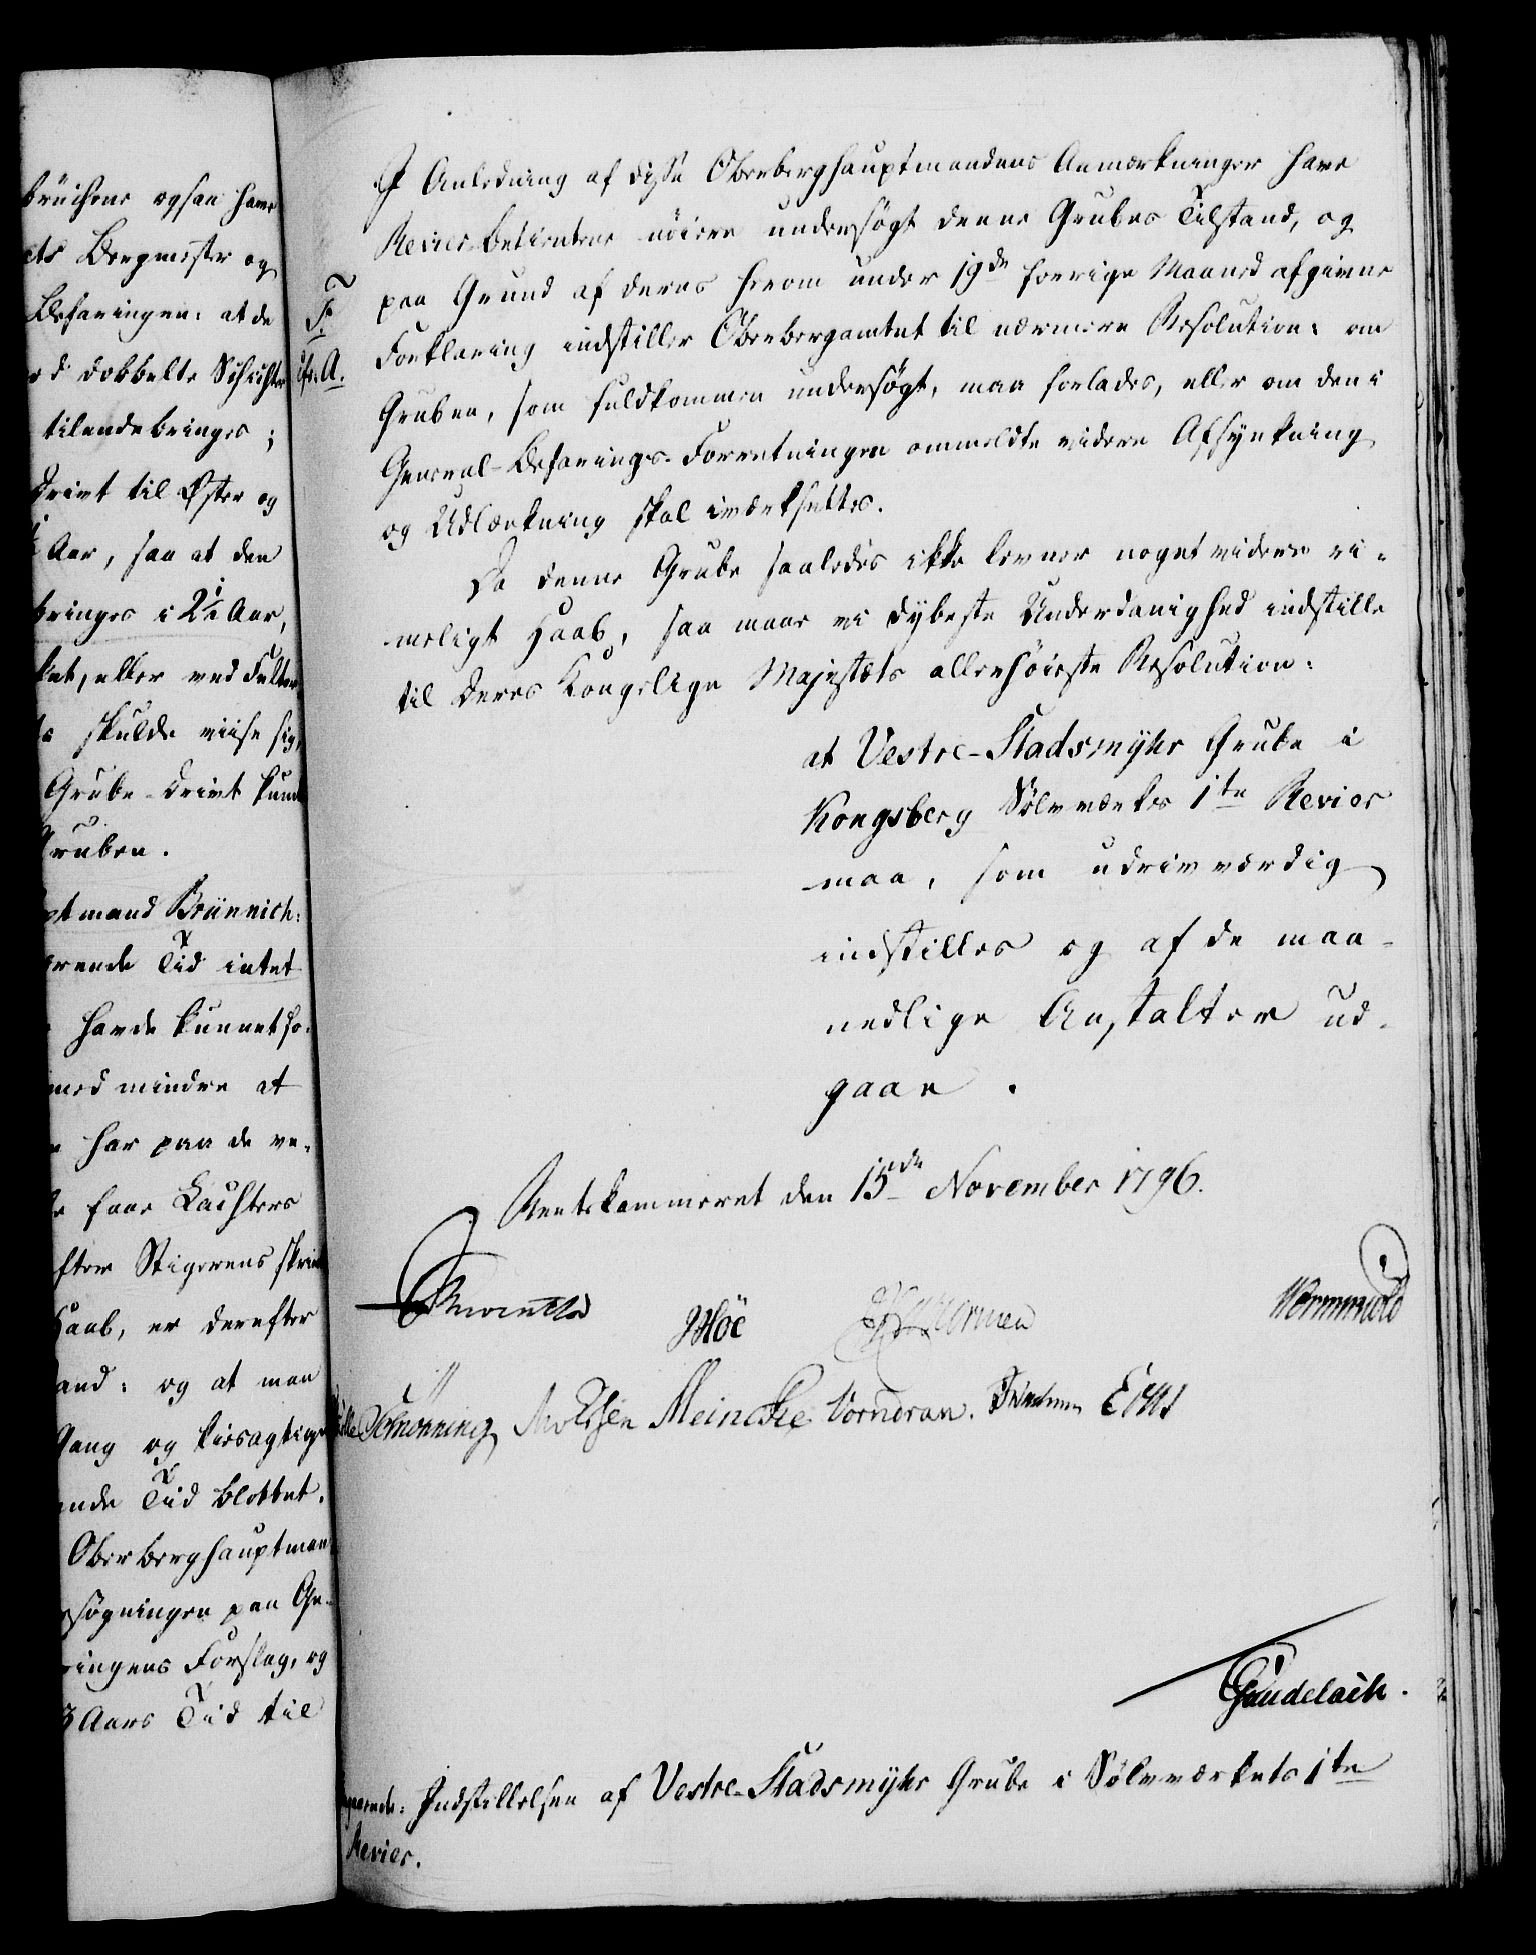 brüchene ogsaa have
ets Bergmester og
Befaringen: at de
d dobbelte Schichter
tilendebringes;
Drivt til Øster og
Aar, saa at den
bringes i 2½ Aar,
ket, eller ved Felter
skulde viise sig,
Grube-Drivt kunde
Gruben.
ptmand Brünnich:
ærende Tid intet
havde kunnet so-
med mindre at
har paa de ve-
faae Lachters
efter Stigerens skrivt
Haab, er derefter
and: og at man
Gang og kiesagtige
ende Tid blottet.
Oberberghauptman
søgningen paa Ge-
ringens Forslag, og
3 Aars Tid til
I Anledning af disse Oberberghauptmandens Anmærkninger have
Revier-betienterne nöiere undersøgt denne Grubes Tilstand, og
paa Grund af deres herom under 19de forrige Maaned afgivne
F.
Forklaring indstiller Oberbergamtet til nærmere Resolution: om
cfr. A.
Gruben, som fuldkommen undersøgt, maa forlades, eller om den i
General-Befarings-Forretningen ommeldte videre Afsynkning
og Udlænkning skal iværksettes.
Da denne Grube saaledes ikke levner noget videre ri-
meligt Haab, saa maae vi i dybeste Underdanighed indstille
til Deres Kongelige Majestæts allerhöieste Resolution:
at Vestre-Stadsmyhr Grube i
Kongsberg Sölvværks 1te Revier
maa, som udrivværdig
indstilles og af de maa-
nedlige Anstalter ud-
gaae.
Rentekammeret den 15de November 1796.
Reventlow
JMöe
Wormskiold
Schönning Knudsen Meincke Vorndran. Eeg
Gundelach.
Indstillelsen af Vestre-Stadsmyhr Grube i Sölvværkets 1te
Revier.